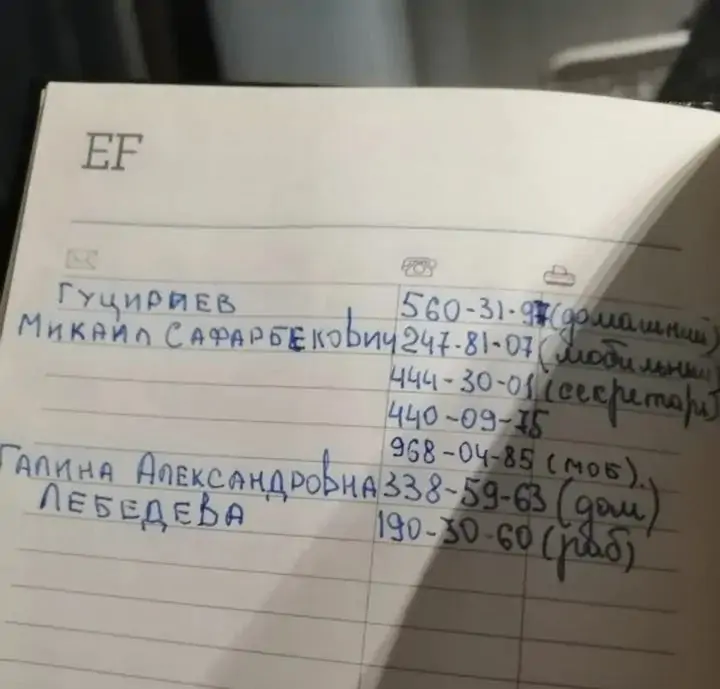 EF
ГУЦИРИЕВ 560-31-97 (домашний)
МИКАИЛ САФАРБЕКОВИЧ 247-81-07 (мобильный)
444-30-01 (секретарь)
440-09-75
968-04-85 (моб).
ГАЛИНА АЛЕКСАНДРОВНА 338-59-63 (дом)
ЛЕБЕДЕВА 190-30-60 (раб)